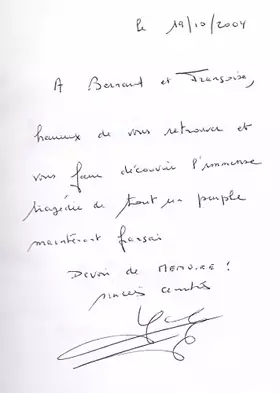 le 19/10/2004
A Bernard et Françoise,
heureux de vous retrouver et
vous faire découvrir l'immense
tragédie de tout un peuple
maintenant
Devoir de MEMOIRE !